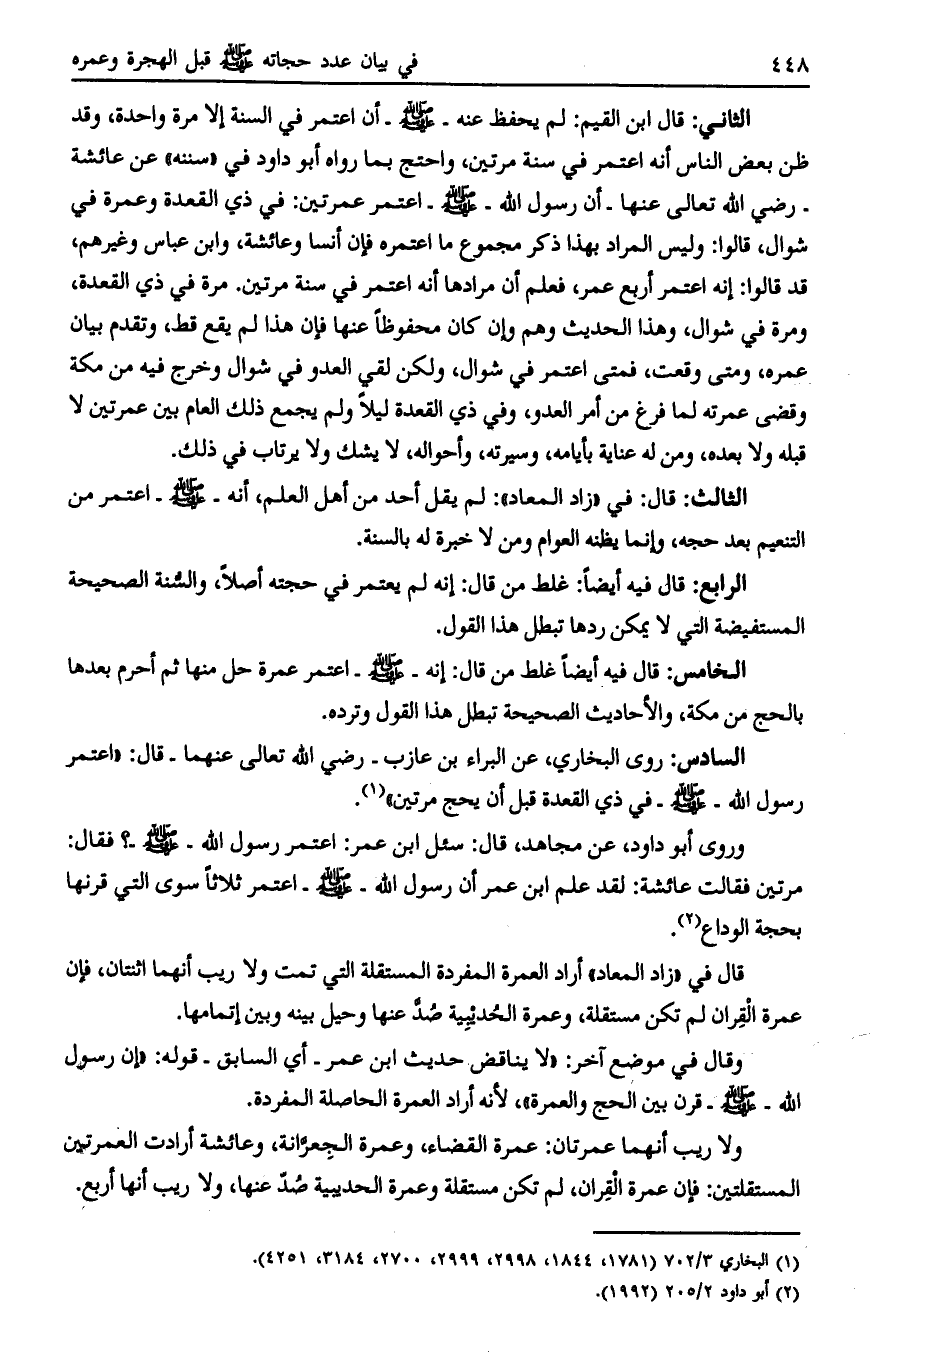 ٤٤٨ في بيان عدد حجاته ﷺ قبل الهجرة وعمره
الثاني: قال ابن القيم: لم يحفظ عنه ـ ﷺ ـ أن اعتمر في السنة إلا مرة واحدة، وقد
ظن بعض الناس أنه اعتمر في سنة مرتين، واحتج بما رواه أبو داود في «سننه» عن عائشة
ـ رضي الله تعالى عنها ـ أن رسول الله ـ ﷺ ـ اعتمر عمرتين: في ذي القعدة وعمرة في
شوال، قالوا: وليس المراد بهذا ذكر مجموع ما اعتمره فإن أنسا وعائشة، وابن عباس وغيرهم،
قد قالوا: إنه اعتمر أربع عمر، فعلم أن مرادها أنه اعتمر في سنة مرتين. مرة في ذي القعدة،
ومرة في شوال، وهذا الحديث وهم وإن كان محفوظاً عنها فإن هذا لم يقع قط، وتقدم بيان
عمره، ومتى وقعت، فمتى اعتمر في شوال، ولكن لقي العدو في شوال وخرج فيه من مكة
وقضى عمرته لما فرغ من أمر العدو، وفي ذي القعدة ليلاً ولم يجمع ذلك العام بين عمرتين لا
قبله ولا بعده، ومن له عناية بأيامه، وسيرته، وأحواله، لا يشك ولا يرتاب في ذلك.
الثالث: قال: في «زاد المعاد»: لم يقل أحد من أهل العلم، أنه ـ ﷺ ـ اعتمر من
التنعيم بعد حجه، وإنما يظنه العوام ومن لا خبرة له بالسنة.
الرابع: قال فيه أيضاً: غلط من قال: إنه لم يعتمر في حجته أصلاً، والسُّنة الصحيحة
المستفيضة التي لا يمكن ردها تبطل هذا القول.
الخامس: قال فيه أيضاً غلط من قال: إنه ـ ﷺ ـ اعتمر عمرة حل منها ثم أحرم بعدها
بالحج من مكة، والأحاديث الصحيحة تبطل هذا القول وترده.
السادس: روى البخاري، عن البراء بن عازب ـ رضي الله تعالى عنهما ـ قال: «اعتمر
رسول الله ـ ﷺ ـ في ذي القعدة قبل أن يحج مرتين»(١).
وروى أبو داود، عن مجاهد، قال: سئل ابن عمر: اعتمر رسول الله ـ ﷺ ـ؟ فقال:
مرتين فقالت عائشة: لقد علم ابن عمر أن رسول الله ـ ﷺ ـ اعتمر ثلاثاً سوى التي قرنها
بحجة الوداع(٢).
قال في «زاد المعاد» أراد العمرة المفردة المستقلة التي تمت ولا ريب أنهما اثنتان، فإن
عمرة الْقِران لم تكن مستقلة، وعمرة الحُديْبِية صُدَّ عنها وحيل بينه وبين إتمامها.
وقال في موضع آخر: «لا يناقض حديث ابن عمر ـ أي السابق ـ قوله: «إن رسول
الله ـ ﷺ ـ قرن بين الحج والعمرة»، لأنه أراد العمرة الحاصلة المفردة.
ولا ريب أنهما عمرتان: عمرة القضاء، وعمرة الجِعرَّانة، وعائشة أرادت العمرتين
المستقلتين: فإن عمرة الْقِران، لم تكن مستقلة وعمرة الحديبية صُدّ عنها، ولا ريب أنها أربع.
(١) البخاري ٧٠٢/٣ (١٧٨١، ١٨٤٤، ٢٩٩٨، ٢٩٩٩، ٢٧٠٠، ٣١٨٤، ٤٢٥١).
(٢) أبو داود ٢٠٥/٢ (١٩٩٢).